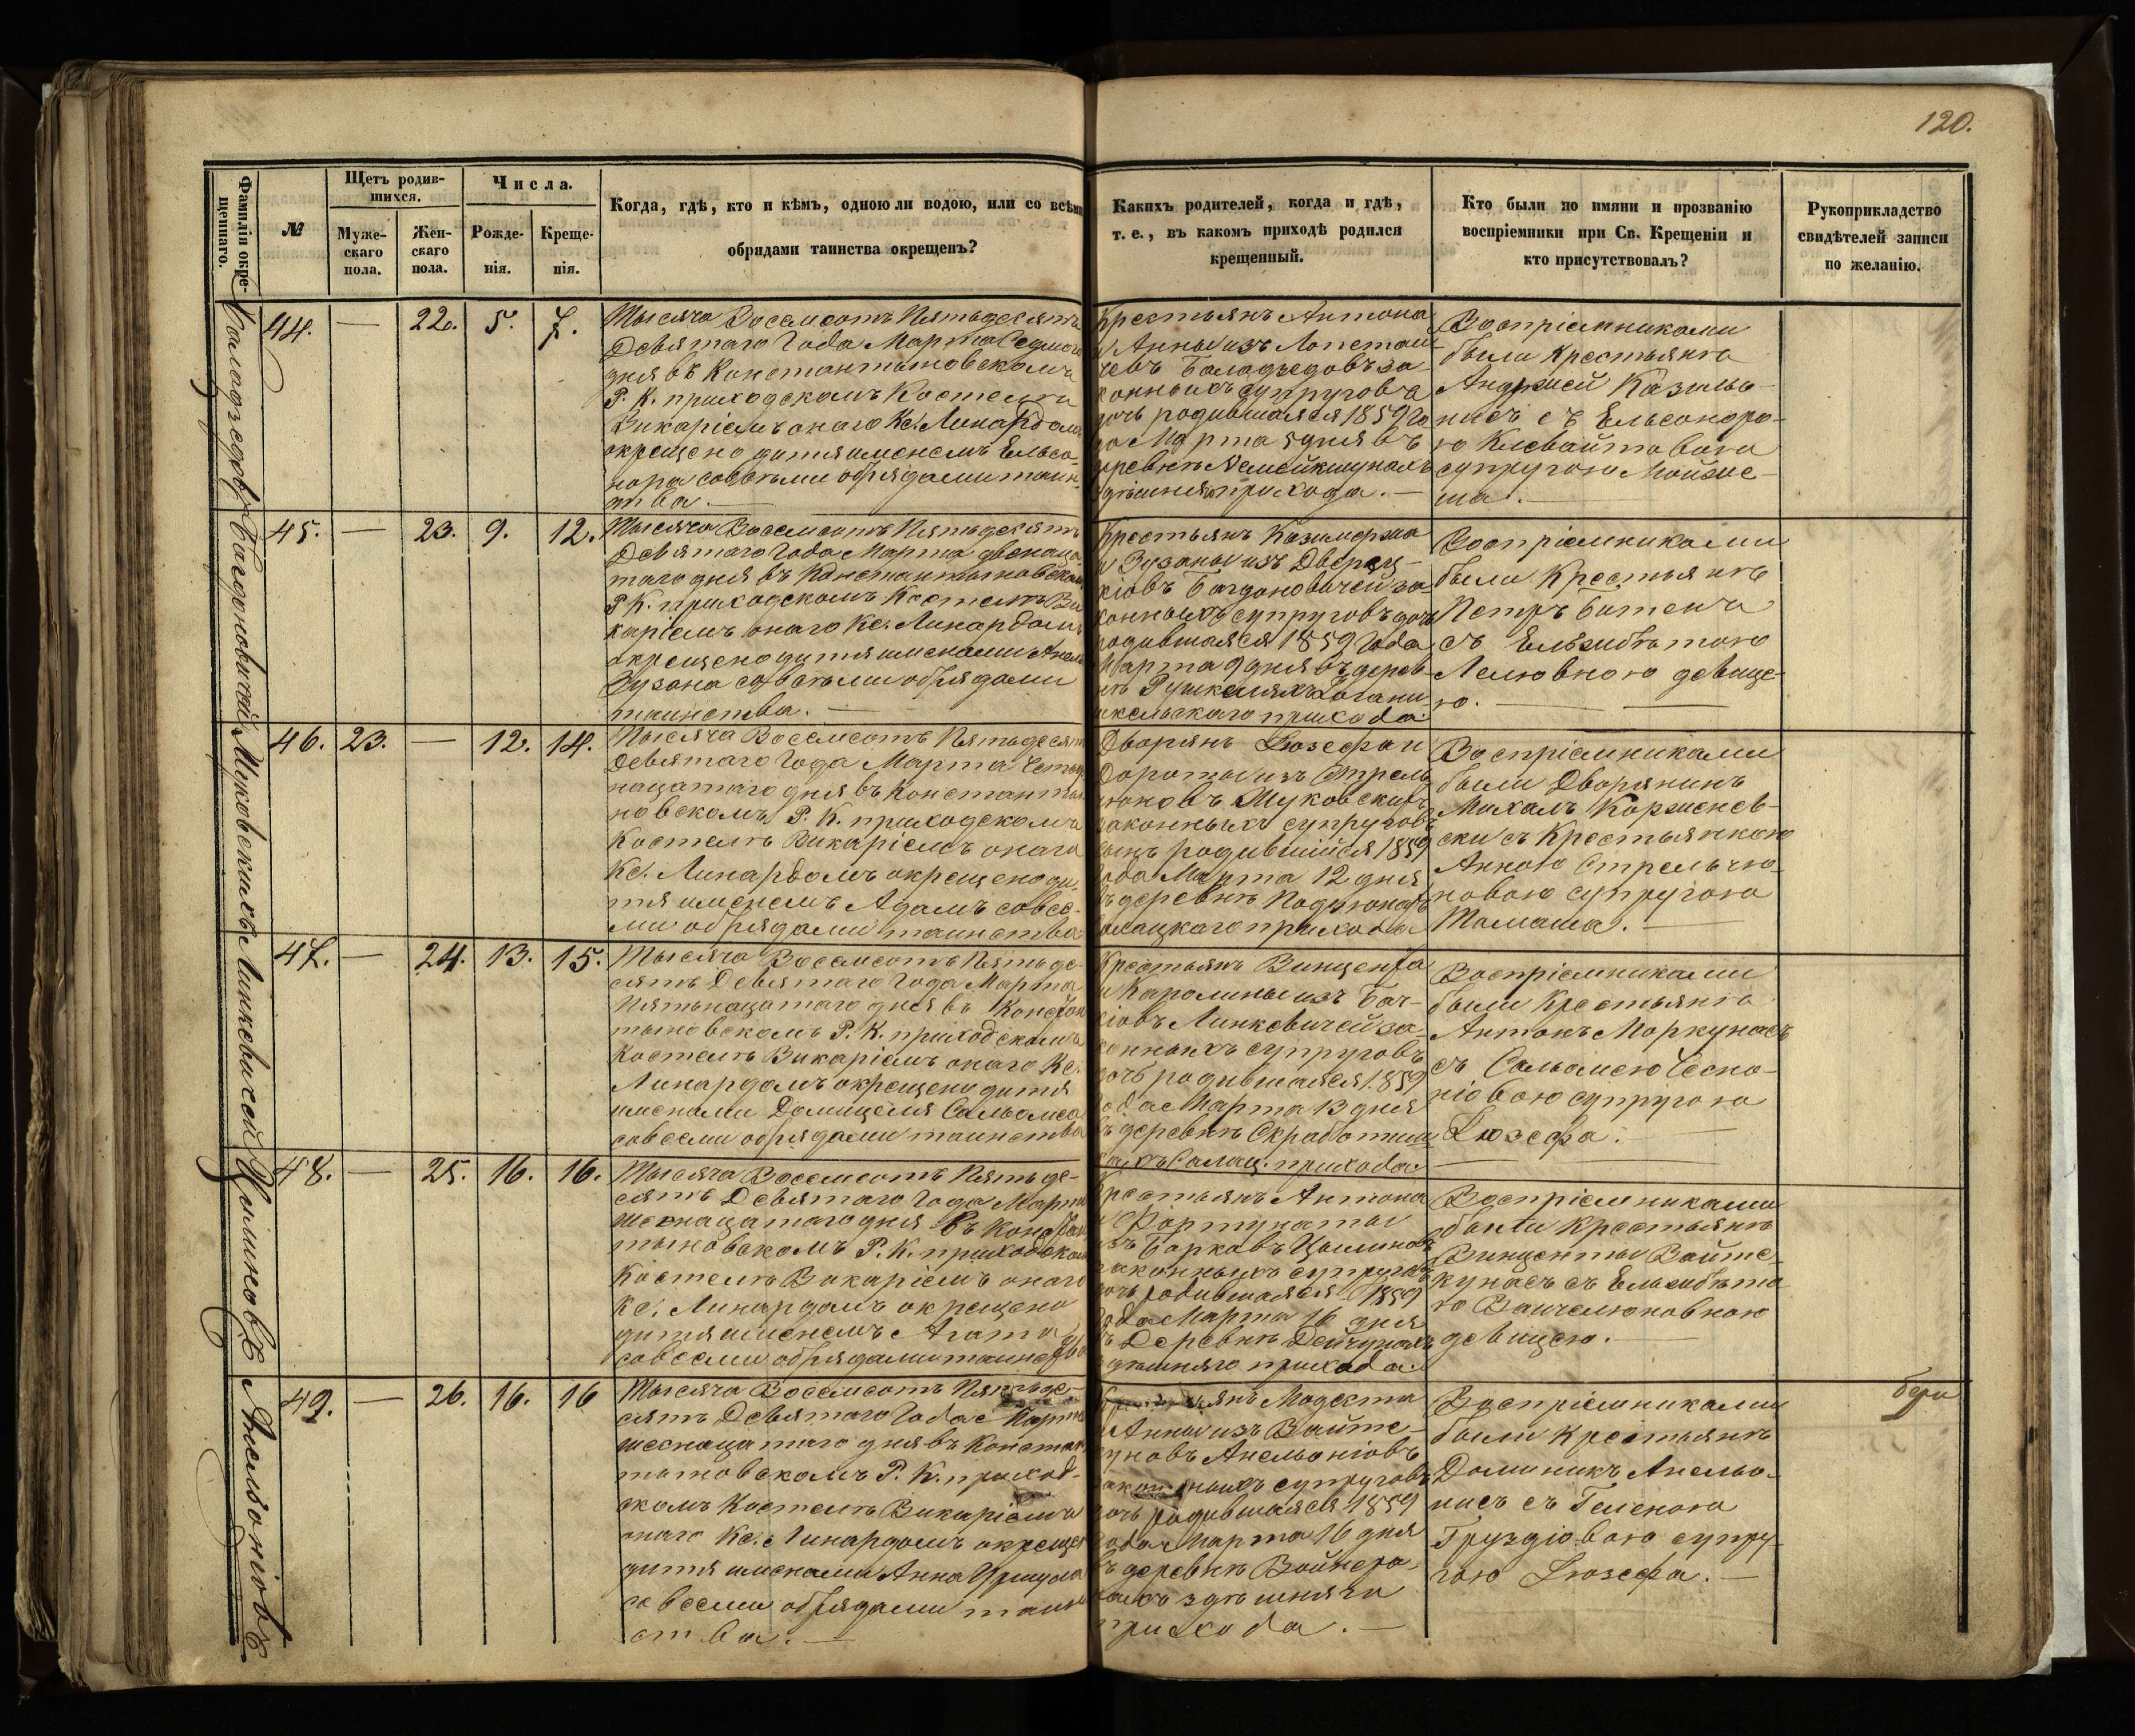 120.
Фамилія окре-
щеннаго.
№
Щетъ родив-
шихся.
Муже-
скаго
пола.
Жен-
скаго
пола.
Числа.
Рожде-
нія.
Креще-
нія.
Когда, гдѣ, кто и кѣмъ, одною ли водою, или со всѣми
обрядами таинства окрещенъ?
Какихъ родителей, когда и гдѣ,
т. е., въ какомъ приходѣ родился
крещенный.
Кто были по имяни и прозванію
воспріемники при Св. Крещеніи и
кто присутствовалъ?
Рукоприкладство
свидѣтелей записи
по желанію.
44. — 22. 5. 7.
Тысяча Восемсотъ Пятьдесятъ
Девятаго Года Марта Седмого
дня въ Константыновскомъ
Р. К. приходскомъ Костелѣ
Викаріемъ онаго Кс. Линардомъ
окрещено дитя именемъ Ельсо-
нора совсѣми обрядами таин-
ства. —
Крестьянъ Антона
и Анны изъ
за-
конныхъ супруговъ
дочь родившаяся 1859 Го
да Марта 5 дня въ
деревнѣ
здѣшняго прихода. —
Воспріемниками
были Крестьяне
Андржей Казлы-
нисъ съ Ельсондро-
ю
супругою Мойже-
ша. —
Багдоновичей
45. — 23. 9. 12.
Тысяча Восемсотъ Пятьдесятъ
Девятаго Года Марта двенаца-
таго дня въ Константыновскомъ
Р. К. приходскомъ Костелѣ Ви
каріемъ онаго Кс. Линардомъ
окрещено дитя именами
Зузана совсѣми обрядами
таинства. —
Крестьянъ Казимержа
и Зузаны изъ Дверец-
кіовъ Багдоновичей за-
конныхъ супруговъ дочь
родившаяся 1859 Года
Марта 9 дня въ дерев
нѣ
прихода.
Воспріемниками
были Крестьяне
Петръ
съ Ельжбѣтою
девице-
ю. —
Жуковскихъ
46. 23. — 12. 14.
Тысяча Восемсотъ Пятьдесятъ
Девятаго Года Марта Четыр
нацатаго дня въ Константы
новскомъ Р. К. приходскомъ
Костелѣ Викаріемъ онаго
Кс. Линардомъ окрещено ди-
тя именемъ Адамъ совсе-
ми обрядами таинства
Дворянъ Юзефа и
Дороты изъ Стрель
цюновъ Жуковскихъ
законныхъ супруговъ
сынъ родившійся 1859
Года Марта 12 дня
въ деревнѣ
Салацкаго прихода
Воспріемниками
были Дворянинъ
Михалъ Корженев-
ски съ Крестьянкою
Анною Стрельчю-
новою супругою
Томаша. —
Линкевичей
47. — 24. 13. 15.
Тысяча Восемсотъ Пятьде-
сятъ Девятаго Года Марта
Пятьнацатаго дня въ Констан
тыновскомъ Р. К. приходскомъ
Костелѣ Викаріемъ онаго Кс.
Линардомъ окрещено дитя
именами Домицеля Сальомеа
совсеми обрядами таинства
Крестьянъ Винцента
и Каролины изъ Бач-
кіовъ Линкевичей за-
конныхъ супруговъ
дочь родившаяся 1859
Года Марта 13 дня
въ деревнѣ Скработиш
кахъ Салац. прихода.
Воспріемниками
были Крестьяне
Антонъ Моркунасъ
съ Сальомею Чесно-
кіовою супругою
Юзефа. —
Цылиновъ
48. — 25. 16. 16.
Тысяча Восемсотъ Пятьде-
сятъ Девятаго Года Марта
Шеснацатаго дня Въ Констан
тыновскомъ Р. К. приходскомъ
Костелѣ Викаріемъ онаго
Кс. Линардомъ окрещено
дитя именемъ Агата
совсеми обрядами таинства
Крестьянъ Антона
и Фортунаты
изъ Барковъ Цылиновъ
законныхъ супруговъ
дочь родившаяся 1859
Года Марта 16 дня
въ Деревнѣ Дейчунахъ
здѣшняго прихода.
Воспріемниками
были Крестьяне
Винценты Войте-
кунасъ съ Ельжбѣто
ю
девицею. —
Анельоніовъ
49. — 26. 16. 16
Тысяча Восемсотъ Пятьде-
сятъ Девятаго Года Марта
Шеснацатаго дня въ Констан
тыновскомъ Р. К. приход-
скомъ Костелѣ Викаріемъ
онаго Кс. Линардомъ окрещено
дитя именами Анна Уршула
совсеми обрядами таин
ства. —
Модеста
и Анны изъ Войте-
куновъ Анельоніовъ
законныхъ супруговъ
дочь родившаяся 1859
Года Марта 16 дня
въ деревнѣ
здѣшняго
прихода. —
Воспріемниками
были Крестьяне
Доминикъ Анельо-
нисъ съ Геленою
Груздіовою супру-
гою Юзефа. —